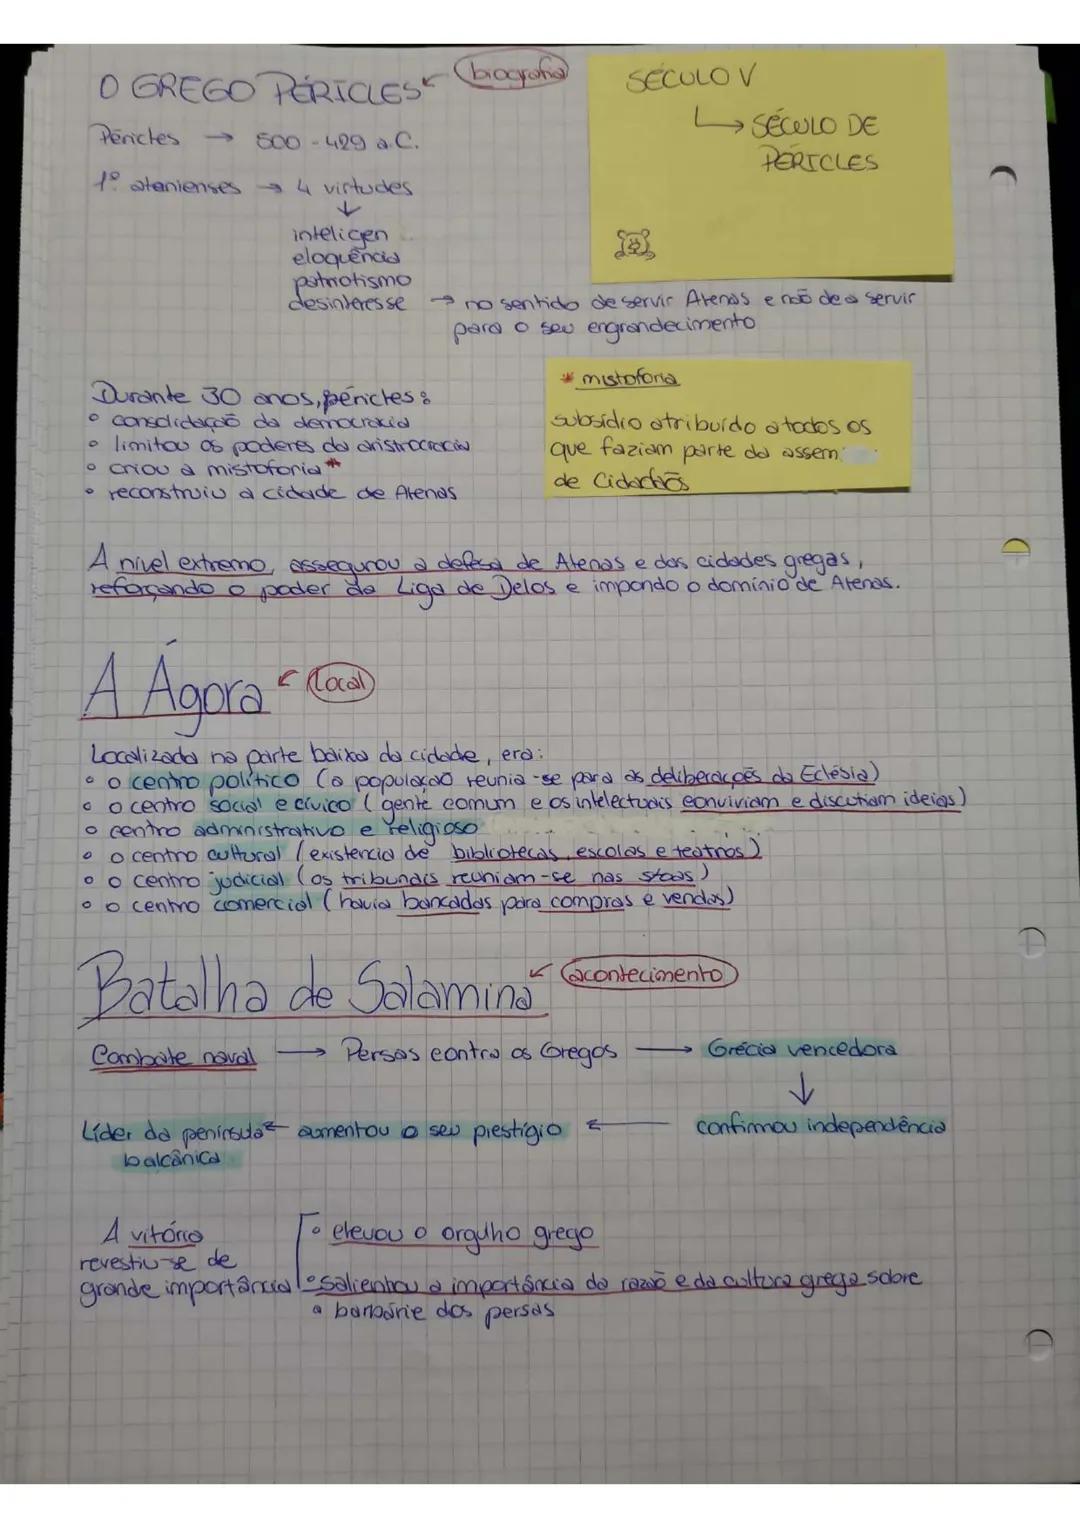 O GREGO PÉRICLES
biografia
SÉCULO V
SÉCULO DE
PÉRICLES
Péricles → 500 - 429 a.C.
1º atenienses → 4 virtudes
inteligen
eloquência
patriotismo
desinteresse → no sentido de servir Atenas e não de a servir
para o seu engrandecimento
* mistoforia
subsídio atribuído a todos os
que faziam parte da assem
de Cidadãos
Durante 30 anos, péricles:
• consolidação da democracia
• limitou os poderes da aristrocracia
• criou a mistoforia *
• reconstruiu a cidade de Atenas
A nível extremo, assegurou a defesa de Atenas e das cidades gregas,
reforçando o poder da Liga de Delos e impondo o domínio de Atenas.
A Ágora ← local
Localizada na parte baixa da cidade, era:
• o centro político (a população reunia-se para as deliberações da Eclésia)
• o centro social e cívico (gente comum e os intelectuais conviviam e discutiam ideias)
• centro administrativo e religioso
• o centro cultural (existencia de bibliotecas, escolas e teatros)
• o centro judicial (os tribunais reuniam-se nas stoas)
• o centro comercial (havia bancadas para compras e vendas)
Batalha de Salamina ← acontecimento
Combate naval → Persas contra os Gregos → Grécia vencedora
Líder da península ← aumentou o seu prestígio ← confirmou independência
balcânica
A vitória
revestiu-se de
grande importância
• elevou o orgulho grego
• salientou a importância da razão e da cultura grega sobre
a barbárie dos persas